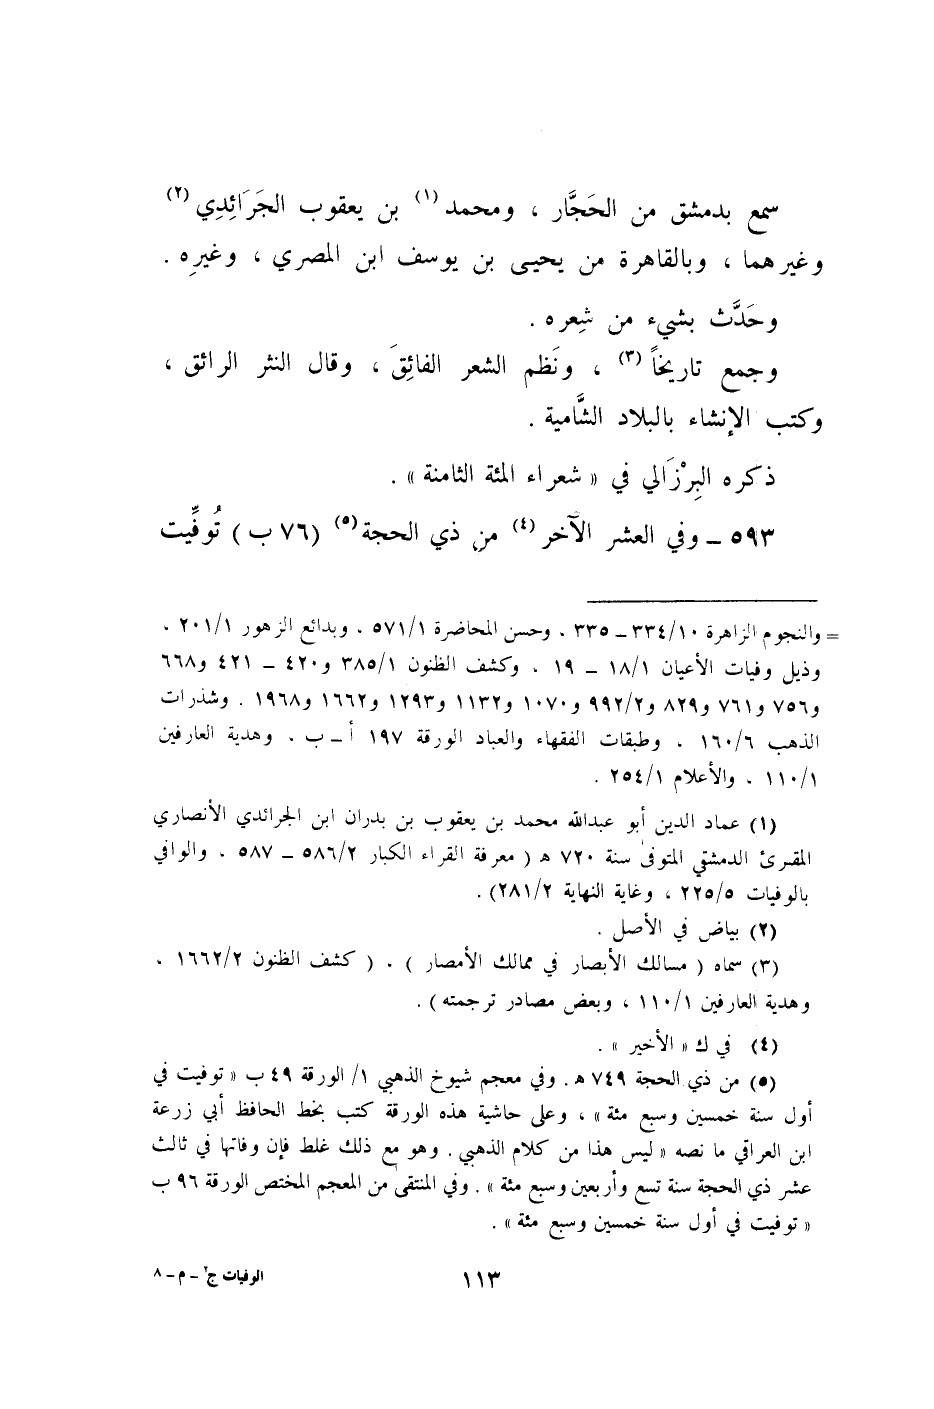 سمع بدمشق من الحَجَّار ، ومحمد (١) بن يعقوب الجَرَائِدِي (٢)
وغيرهما ، وبالقاهرة من يحيى بن يوسف ابن المصري ، وغيرِه .
وحَدَّث بشيء من شِعره .
وجمع تاريخاً (٣) ، ونَظم الشعر الفائِقَ ، وقال النثر الرائق ،
وكتب الإنشاء بالبلاد الشَّامية .
ذكره البِرْزَالي في « شعراء المئة الثامنة » .
٥٩٣ ــ وفي العشر الآخر (٤) من ذي الحجة (٥) (٧٦ ب ) تُوفِّيت
= والنجوم الزاهرة ٣٣٤/١٠ ــ ٣٣٥ . وحسن المحاضرة ٥٧١/١ . وبدائع الزهور ٢٠١/١ .
وذيل وفيات الأعيان ١٨/١ ــ ١٩ . وكشف الظنون ٣٨٥/١ و٤٢٠ ــ ٤٢١ و٦٦٨
و٧٥٦ و٧٦١ و٨٢٩ و٩٩٢/٢ و١٠٧٠ و١١٣٢ و١٢٩٣ و١٦٦٢ و١٩٦٨ . وشذرات
الذهب ١٦٠/٦ . وطبقات الفقهاء والعباد الورقة ١٩٧ أ ــ ب . وهدية العارفين
١١٠/١ . والأعلام ٢٥٤/١ .
(١) عماد الدين أبو عبدالله محمد بن يعقوب بن بدران ابن الجرائدي الأنصاري
المقرئ الدمشقي المتوفى سنة ٧٢٠ هـ ( معرفة القراء الكبار ٥٨٦/٢ ــ ٥٨٧ . والوافي
بالوفيات ٢٢٥/٥ ، وغاية النهاية ٢٨١/٢) .
(٢) بياض في الأصل .
(٣) سماه ( مسالك الأبصار في ممالك الأمصار ) . ( كشف الظنون ١٦٦٢/٢ .
وهدية العارفين ١١٠/١ ، وبعض مصادر ترجمته ) .
(٤) في ك « الأخير » .
(٥) من ذي الحجة ٧٤٩ هـ . وفي معجم شيوخ الذهبي ١/ الورقة ٤٩ ب « توفيت في
أول سنة خمسين وسبع مئة » ، وعلى حاشية هذه الورقة كتب بخط الحافظ أبي زرعة
ابن العراقي ما نصه « ليس هذا من كلام الذهبي . وهو مع ذلك غلط فإن وفاتها في ثالث
عشر ذي الحجة سنة تسع وأربعين وسبع مئة » . وفي المنتقى من المعجم المختص الورقة ٩٦ ب
« توفيت في أول سنة خمسين وسبع مئة » .
١١٣
الوفيات ج٢ - م - ٨